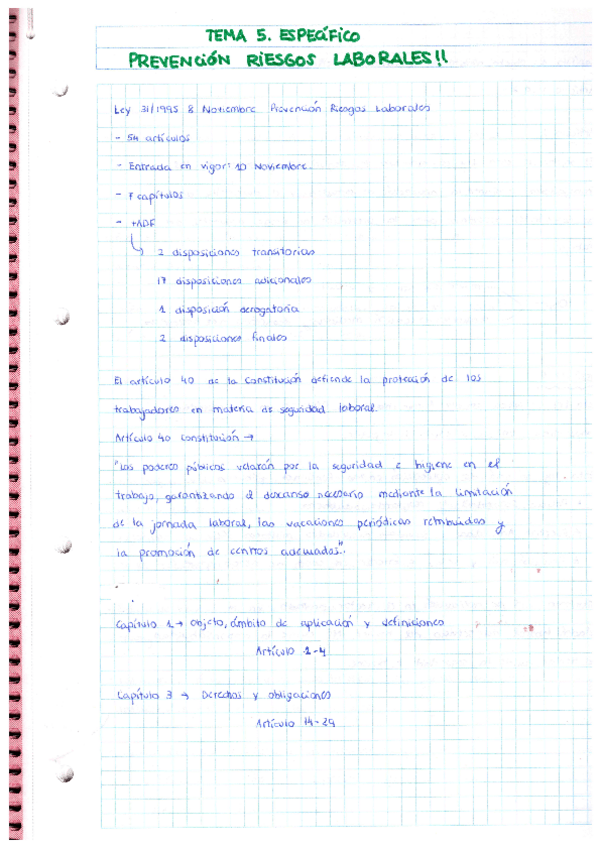 TEMA 5. ESPECÍFICO
PREVENCIÓN RIESGOS LABORALES!!
Ley 31/1995 8 Noviembre Prevención Riesgos Laborales
- 54 artículos
- Entrada en vigor: 10 Noviembre.
- 7 capítulos
- +ADF
2 disposiciones transitorias
17 disposiciones adicionales
1 disposición derogatoria
2 disposiciones finales
El artículo 40 de la Constitución defiende la protección de los
trabajadores en materia de seguridad laboral.
Artículo 40 constitución →
"Los poderes públicos velarán por la seguridad e higiene en el
trabajo, garantizando el descanso necesario mediante la limitación
de la jornada laboral, las vacaciones periódicas retribuidas y
la promoción de centros adecuados".
Capítulo 1 → Objeto, ámbito de aplicación y definiciones
Artículo 1-4
Capítulo 3 → Derechos y obligaciones
Artículo 14-29